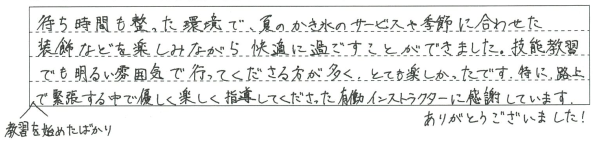 待ち時間も整った環境で、夏のかき氷のサービスや季節に合わせた
装飾などを楽しみながら、快適に過ごすことができました。技能教習
でも明るい雰囲気で行ってくださる方が多く、とても楽しかったです。特に、路上
で緊張する中で優しく楽しく指導してくださった有働インストラクターに感謝しています。
教習を始めたばかり
ありがとうございました!